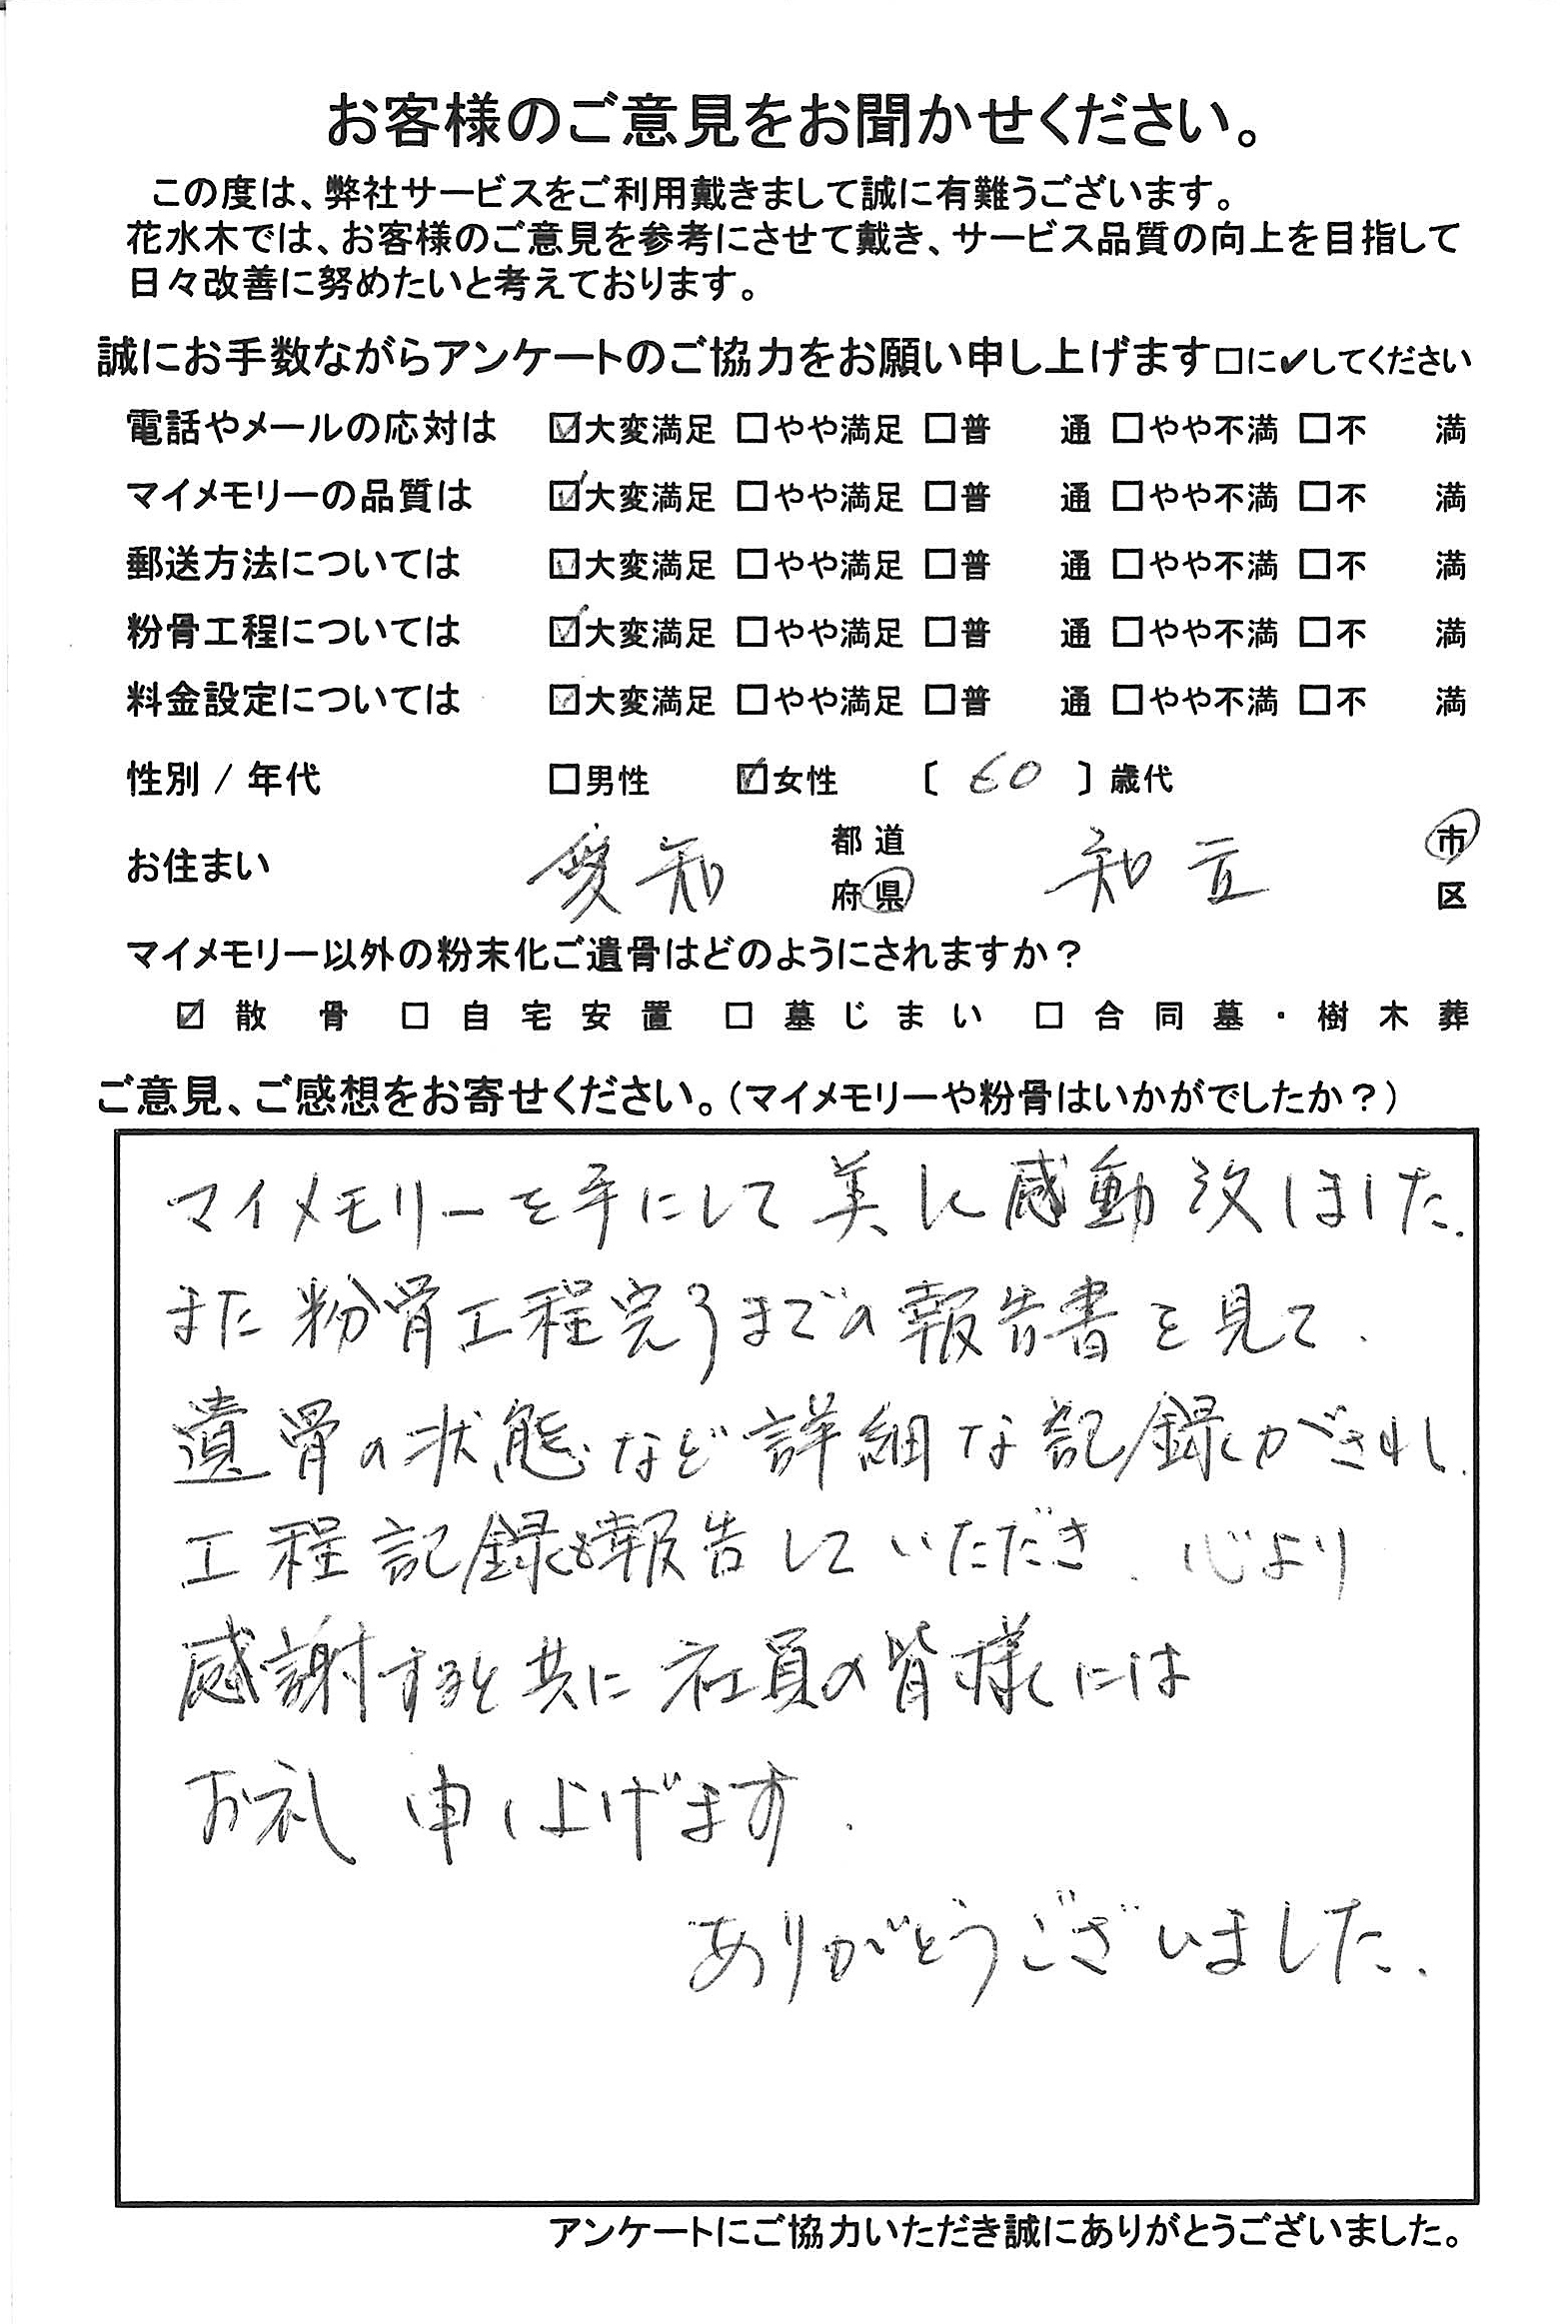 お客様のご意見をお聞かせください。
この度は、弊社サービスをご利用戴きまして誠に有難うございます。
花水木では、お客様のご意見を参考にさせて戴き、サービス品質の向上を目指して
日々改善に努めたいと考えております。
誠にお手数ながらアンケートのご協力をお願い申し上げます□に✔してください
電話やメールの応対は ☑大変満足 □やや満足 □普 通 □やや不満 □不 満
マイメモリーの品質は ☑大変満足 □やや満足 □普 通 □やや不満 □不 満
郵送方法については ☑大変満足 □やや満足 □普 通 □やや不満 □不 満
粉骨工程については ☑大変満足 □やや満足 □普 通 □やや不満 □不 満
料金設定については ☑大変満足 □やや満足 □普 通 □やや不満 □不 満
性別 / 年代 □男性 ☑女性 〔 60 〕歳代
お住まい 愛知 都道府県 知立 市区
マイメモリー以外の粉末化ご遺骨はどのようにされますか？
☑ 散骨 □ 自宅安置 □ 墓じまい □ 合同墓・樹木葬
ご意見、ご感想をお寄せください。（マイメモリーや粉骨はいかがでしたか？）
マイメモリーを手にして美しく感動致しました.
また粉骨工程完了までの報告書を見て、
遺骨の状態など詳細な記録がされ、
工程記録も報告していただき、心より
感謝すると共に社員の皆様には
お礼申し上げます.
ありがとうございました.
アンケートにご協力いただき誠にありがとうございました。